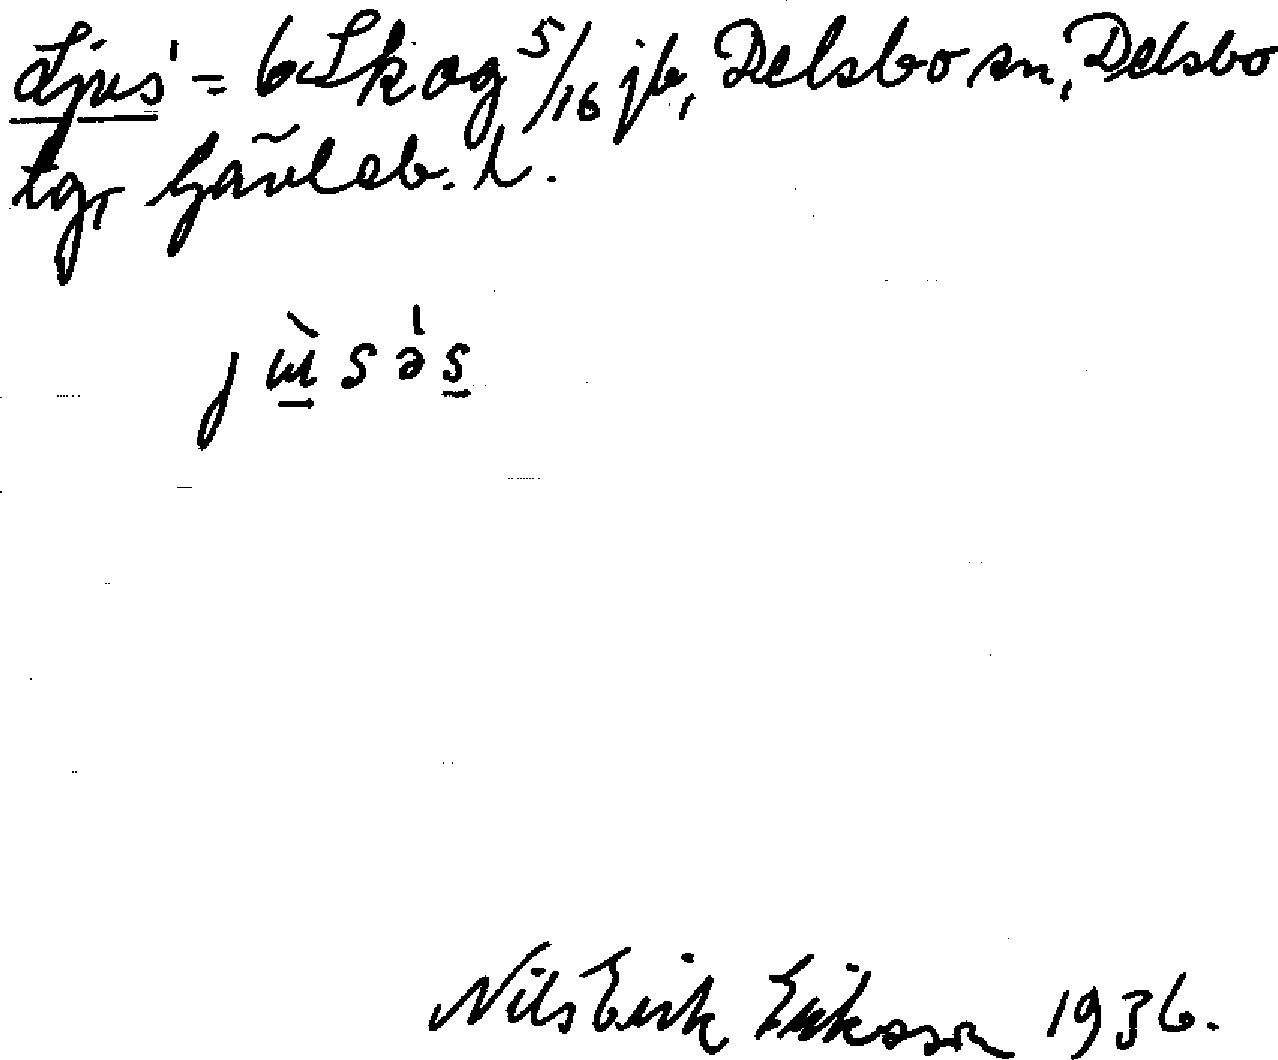 Ljus' = 6 Skog 5/16 jb, Delsbo sn, Delsbo
tg, Gävleb. L.
Nils Erik Eriksson 1936.